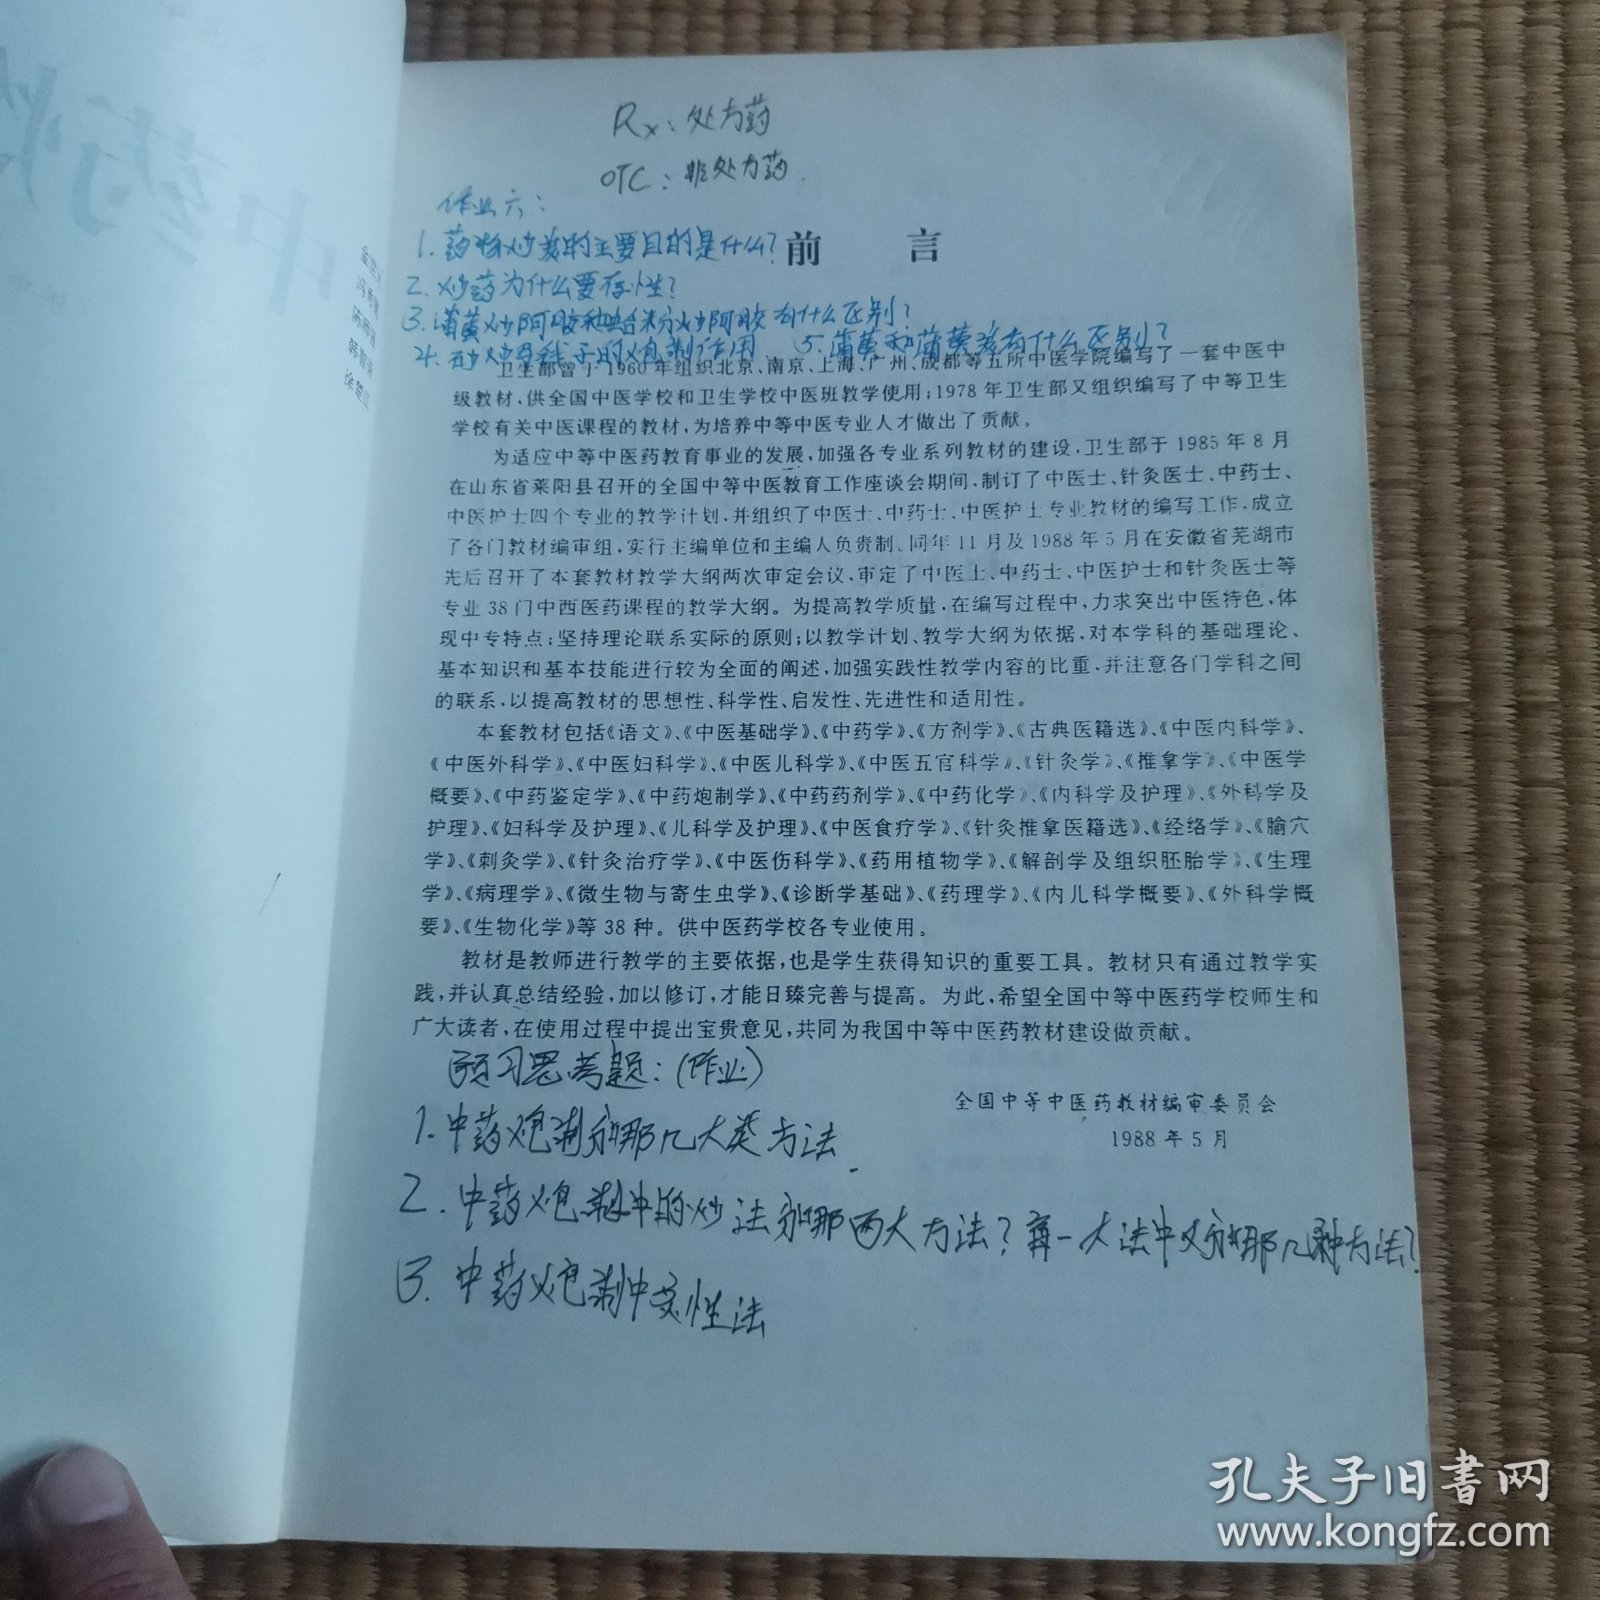 Rx：处方药
OTC：非处方药.
作业六：
1.药物炒炭的主要目的是什么？
前言
2.炒药为什么要存性？
3.蒲黄炒阿胶和蛤粉炒阿胶有什么区别？
4.砂烫马钱子的炮制作用. 5.蒲黄和蒲黄炭有什么区别？
卫生部曾于1960年组织北京、南京、上海、广州、成都等五所中医学院编写了一套中医中
级教材，供全国中医学校和卫生学校中医班教学使用；1978年卫生部又组织编写了中等卫生
学校有关中医课程的教材，为培养中等中医专业人才做出了贡献。
为适应中等中医药教育事业的发展，加强各专业系列教材的建设，卫生部于1985年8月
在山东省莱阳县召开的全国中等中医教育工作座谈会期间，制订了中医士、针灸医士、中药士、
中医护士四个专业的教学计划，并组织了中医士、中药士、中医护士专业教材的编写工作，成立
了各门教材编审组，实行主编单位和主编人负责制。同年11月及1988年5月在安徽省芜湖市
先后召开了本套教材教学大纲两次审定会议，审定了中医士、中药士、中医护士和针灸医士等
专业38门中西医药课程的教学大纲。为提高教学质量，在编写过程中，力求突出中医特色，体
现中专特点；坚持理论联系实际的原则；以教学计划、教学大纲为依据，对本学科的基础理论、
基本知识和基本技能进行较为全面的阐述，加强实践性教学内容的比重，并注意各门学科之间
的联系，以提高教材的思想性、科学性、启发性、先进性和适用性。
本套教材包括《语文》、《中医基础学》、《中药学》、《方剂学》、《古典医籍选》、《中医内科学》、
《中医外科学》、《中医妇科学》、《中医儿科学》、《中医五官科学》、《针灸学》、《推拿学》、《中医学
概要》、《中药鉴定学》、《中药炮制学》、《中药药剂学》、《中药化学》、《内科学及护理》、《外科学及
护理》、《妇科学及护理》、《儿科学及护理》、《中医食疗学》、《针灸推拿医籍选》、《经络学》、《腧穴
学》、《刺灸学》、《针灸治疗学》、《中医伤科学》、《药用植物学》、《解剖学及组织胚胎学》、《生理
学》、《病理学》、《微生物与寄生虫学》、《诊断学基础》、《药理学》、《内儿科学概要》、《外科学概
要》、《生物化学》等38种。供中医药学校各专业使用。
教材是教师进行教学的主要依据，也是学生获得知识的重要工具。教材只有通过教学实
践，并认真总结经验，加以修订，才能日臻完善与提高。为此，希望全国中等中医药学校师生和
广大读者，在使用过程中提出宝贵意见，共同为我国中等中医药教材建设做贡献。
预习思考题：（作业）
全国中等中医药教材编审委员会
1988年5月
1.中药炮制分哪几大类方法.
2.中药炮制中的炒法分哪两大方法？每一大法中又分哪几种方法？
3.中药炮制中炭性法
孔夫子旧书网
www.kongfz.com